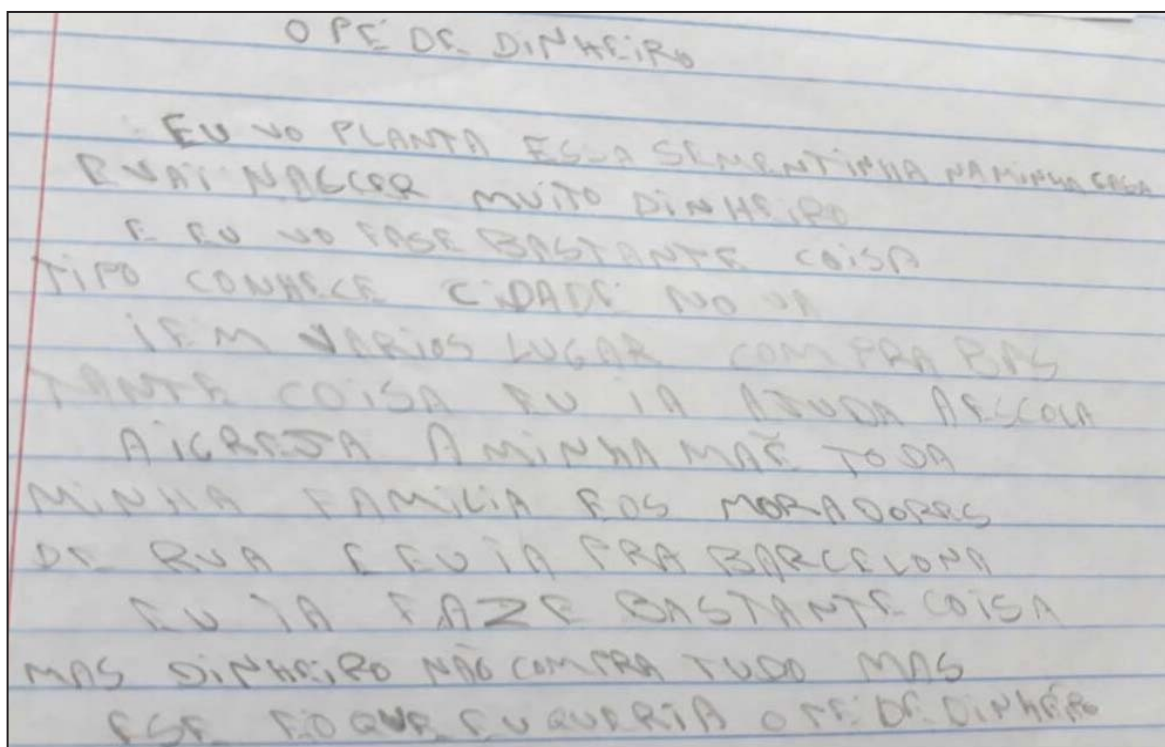 O PÉ DE DINHEIRO
EU VO PLANTA ESSA SEMENTINHA NA MINHA CASA
E VAI NASCER MUITO DINHEIRO
E EU VO FASE BASTANTE COISA
TIPO CONHECE CIDADE NOVA
I EM VARIOS LUGAR COMPRA BAS
TANTE COISA EU IA AJUDA A ESCOLA
A IGREJA A MINHA MÃE TODA
MINHA FAMILIA E OS MORADORES
DE RUA E EU IA PRA BARCELONA
EU IA FAZE BASTANTE COISA
MAS DINHEIRO NÃO COMPRA TUDO MAS
ESE E O QUE EU QUERIA O PÉ DE DINHERO